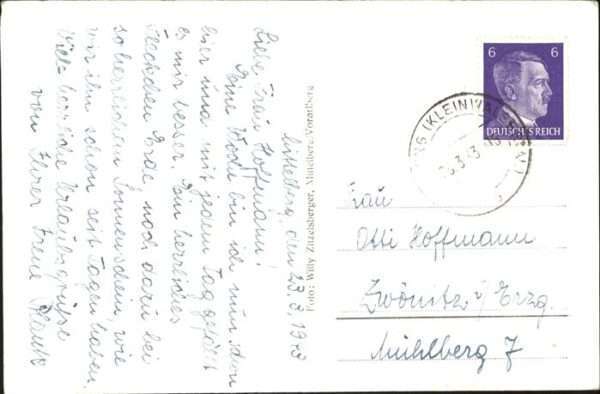 Mittelberg, den 23.3.1943
Liebe Frau Hoffmann!
Eine Woche bin ich nun schon
hier und mit jedem Tag gefällt
es mir besser. Ein herrliches
Fleckchen Erde, noch dazu bei
so herrlichem Sonnenschein, wie
wir ihn schon seit Tagen haben.
Viele herzliche Urlaubsgrüße
von Ihrer Irene
Foto: Willy Mittelberg, Vorarlberg
6 6
DEUTSCHES REICH
(KLEINW
3.43
Frau
Otti Hoffmann
Zwönitz i/ Erzg.
Mühlberg 7